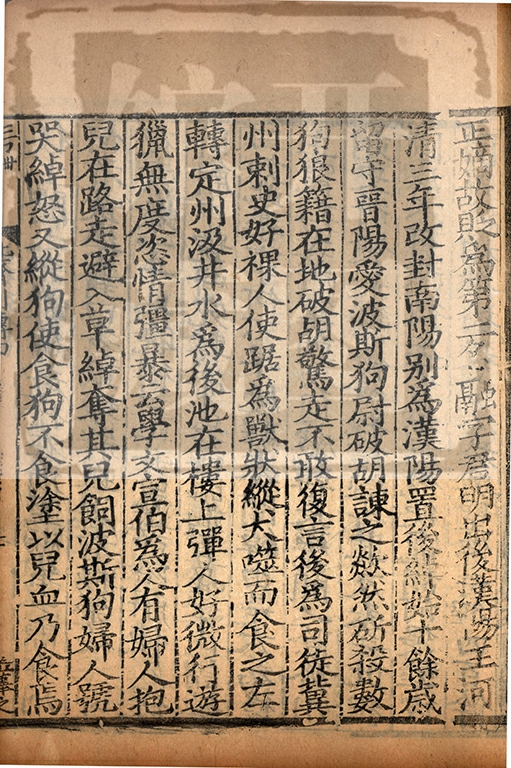 正嫡故貶為第二初名融字君明出後漢陽王河
清三年改封南陽別為漢陽置後綽始十餘歲
留守晉陽愛波斯狗尉破胡諫之欻然斫殺數
狗狠籍在地破胡驚走不敢復言後為司徒冀
州刺史好裸人使踞為獸狀縱犬噬而食之左
轉定州汲井水為後池在樓上彈人好微行遊
獵無度恣情彊暴云學文宣伯為人有婦人抱
兒在路走避入草綽奪其兒飼波斯狗婦人號
哭綽怒又縱狗使食狗不食塗以兒血乃食焉